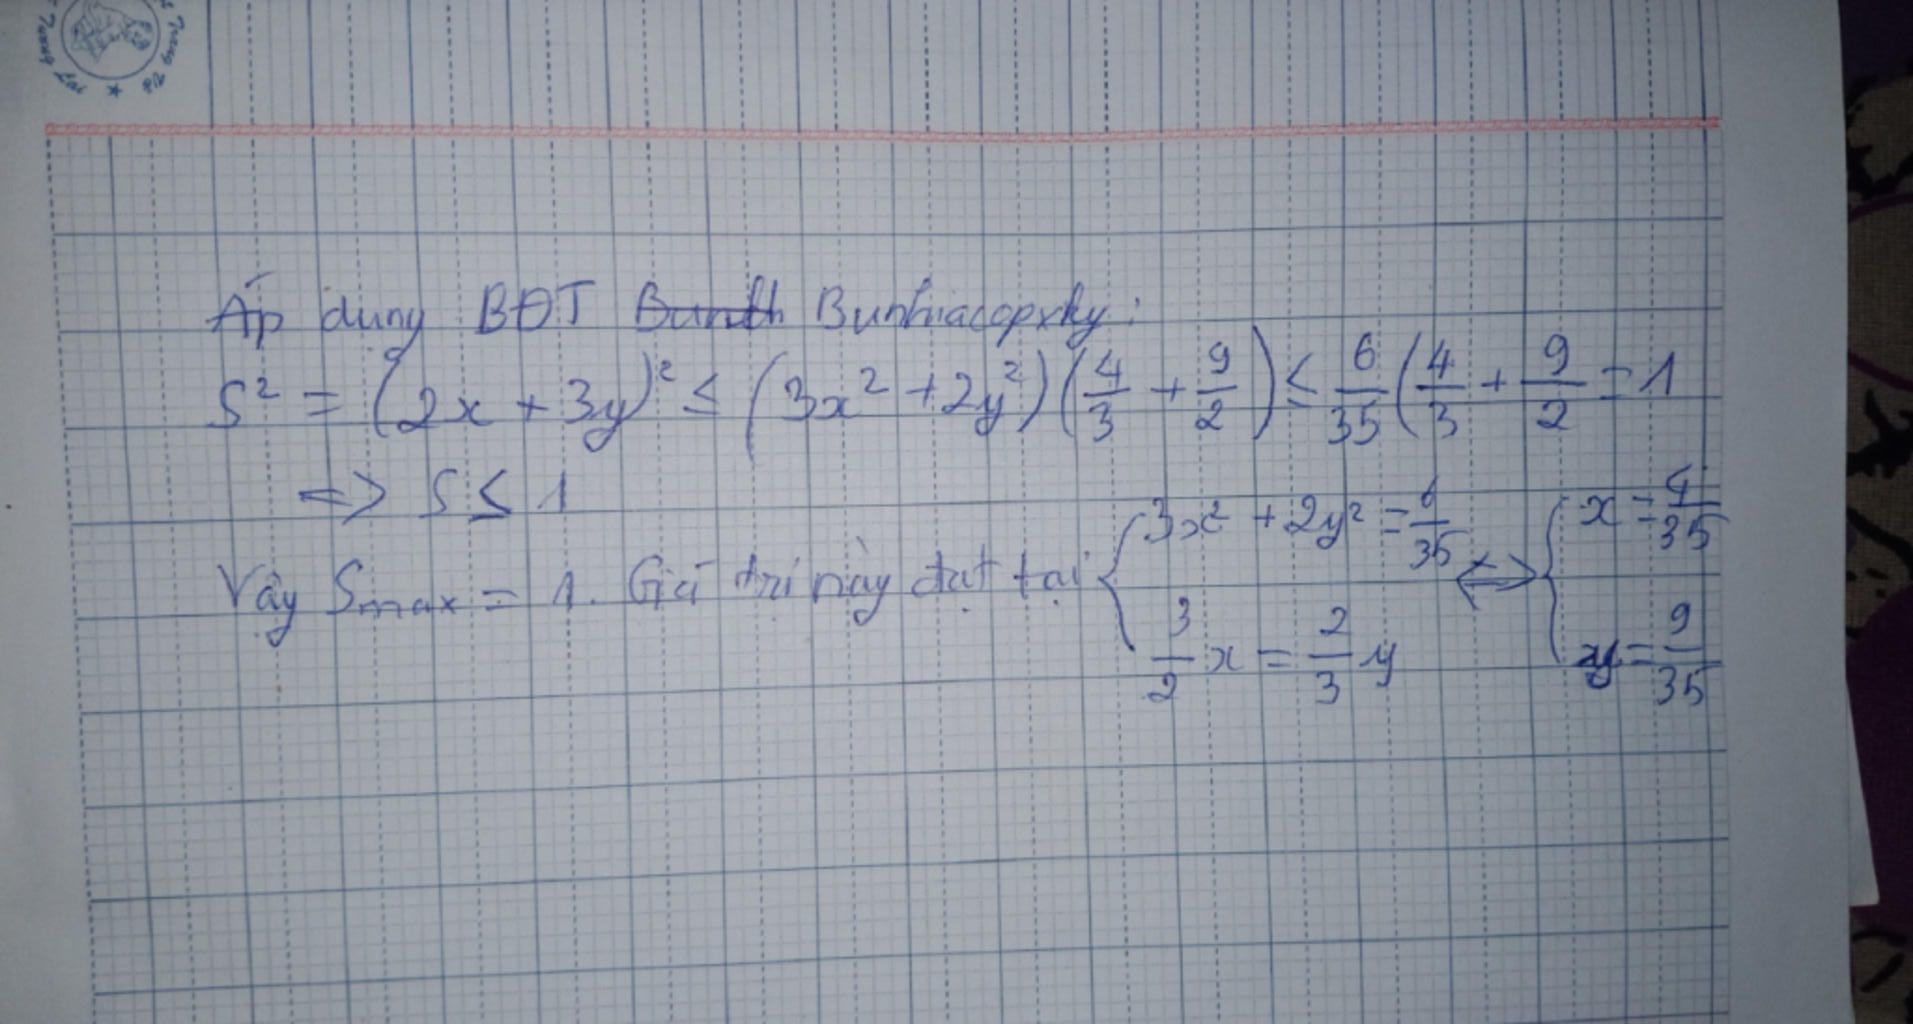 Áp dụng BĐT Bunhiacopxky:
S² = (2x + 3y)² ≤ (3x² + 2y²)(4/3 + 9/2) ≤ 6/35 (4/3 + 9/2 = 1
=> S ≤ 1
Vậy Smax = 1. Giá trị này đạt tại { 3x² + 2y² = 6/35 ; 3/2 x = 2/3 y <=> { x = 4/35 ; y = 9/35